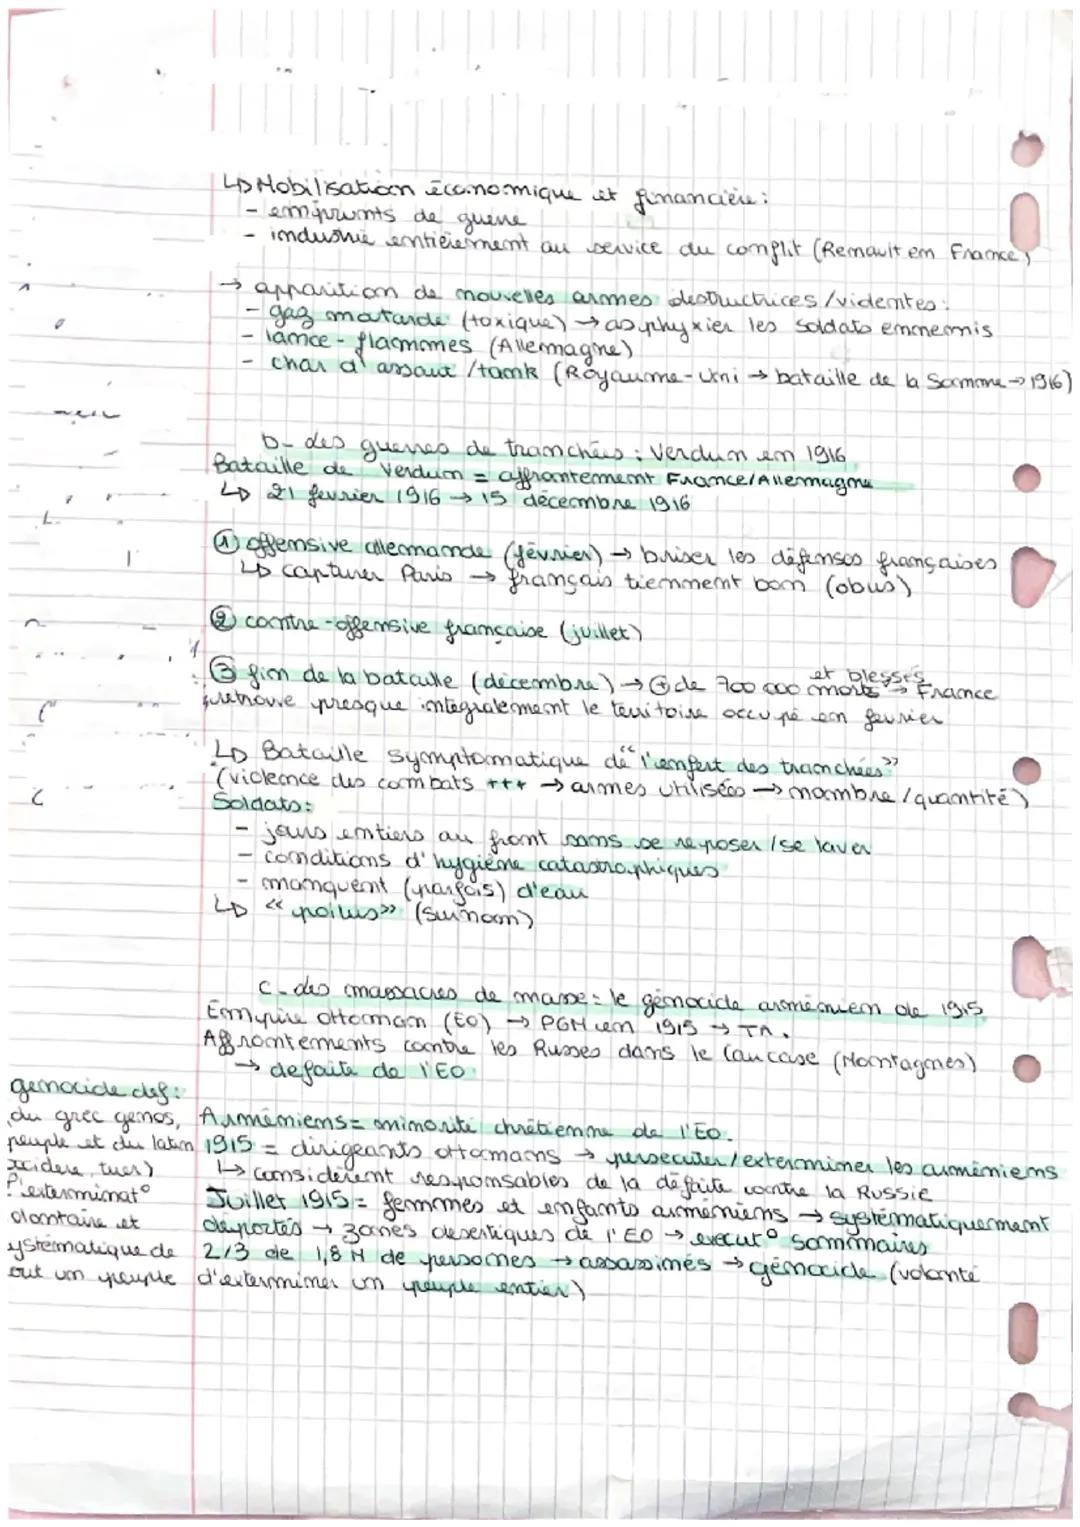 ↳ Mobilisation économique et financière :
- emprunts de guerre
- industrie entièrement au service du conflit (Renault en France)
→ apparition de nouvelles armes destructrices/violentes :
- gaz moutarde (toxique) → asphyxier les soldats ennemis
- lance-flammes (Allemagne)
- char d'assaut /tank (Royaume-Uni → bataille de la Somme → 1916)
b- des guerres de tranchées : Verdun en 1916
Bataille de Verdun = affrontement France/Allemagne
↳ 21 février 1916 → 15 décembre 1916
① offensive allemande (février) → briser les défenses françaises
↳ capturer Paris → français tiennent bon (obus)
② contre-offensive française (juillet)
③ fin de la bataille (décembre) → ⊕ de 700 000 morts et blessés → France
retrouve presque intégralement le territoire occupé en février
↳ Bataille symptomatique de "l'enfert des tranchées"
(violence des combats +++ → armes utilisées → nombre/quantité)
Soldats :
- jours entiers au front sans se reposer/se laver
- conditions d'hygiène catastrophiques
- manquent (parfois) d'eau
↳ « poilus » (surnom)
c- des massacres de masse : le génocide arménien de 1915
Empire Ottoman (EO) → PGM en 1915 →
Affrontements contre les Russes dans le Caucase (Montagnes)
→ defaite de l'EO
Arméniens = minorité chrétienne de l'EO.
1915 = dirigeants ottomans → persecuter/exterminer les arméniens
↳ considèrent responsables de la défaite contre la Russie
Juillet 1915 = femmes et enfants arméniens → systématiquement
déportés → zones desertiques de l'EO → execut° sommaires
2/3 de 1,8 M de personnes → assassinés → génocide (volonté
d'exterminer un peuple entier)
genocide def :
du grec genos,
peuple et du latin
tuer)
l'exterminat°
et
de
un peuple